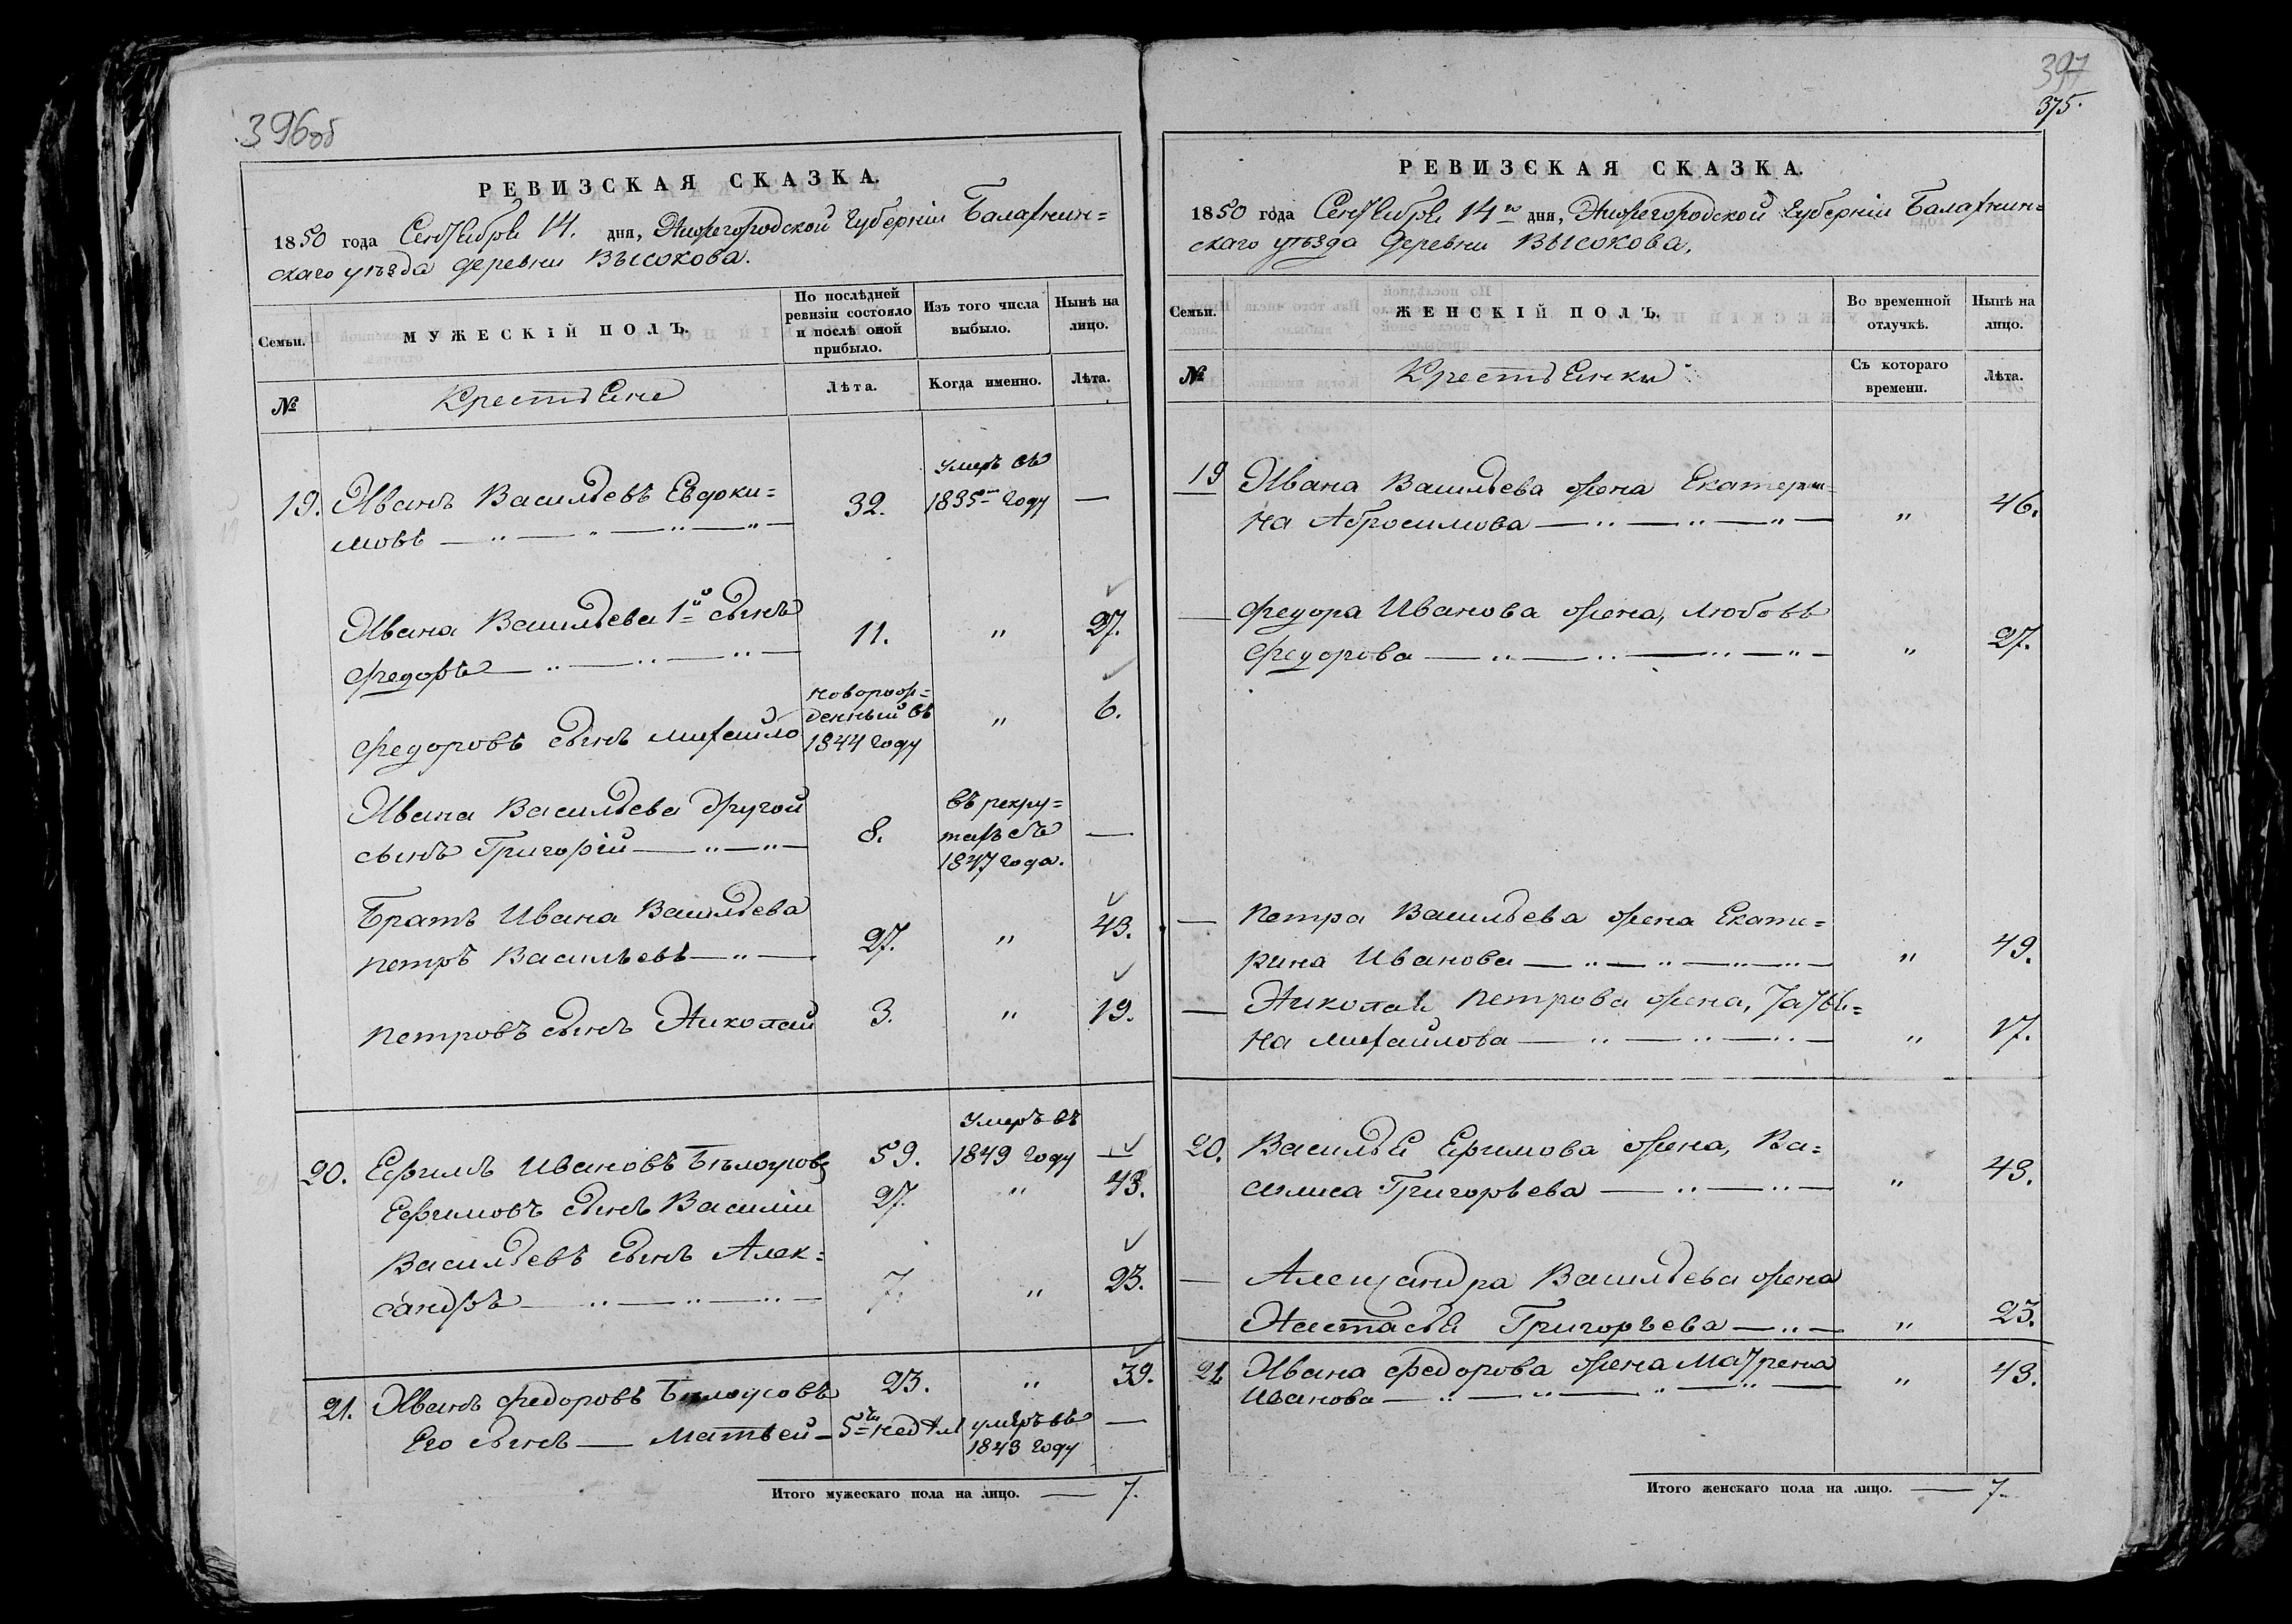 396об
РЕВИЗСКАЯ СКАЗКА.
1850 года Сентября 14. дня, Нижегородской Губерніи Балахнин=
скаго уѣзда деревни Высокова.
Семьи.
МУЖЕСКІЙ ПОЛЪ.
По послѣдней
ревизіи состояло
и послѣ оной
прибыло.
Изъ того числа
выбыло.
Нынѣ на
лицо.
№
Крестьяне
Лѣта.
Когда именно.
Лѣта.
умеръ въ
19. Иванъ Васильевъ Евдоки= 32. 1835м году —
мовъ — " — " — " —
Ивана Васильева 1й сынъ 11. " 27.
Федоръ — " — " — " —
новорож=
денный въ " 6.
Федоровъ сынъ Михайло 1844 году
Ивана Васильева другой въ рекру=
сынъ Григорій — " — " — 8. тахъ съ —
1847 года.
Братъ Ивана Васильева 27. " 43.
Петръ Васильевъ — " —
Петровъ сынъ Николай 3. " 19.
умеръ въ
20. Ефимъ Ивановъ Бѣлоусовъ 59. 1849 году —
Ефимовъ сынъ Василій 27. " 43.
Васильевъ сынъ Алек=
сандръ — " — " — " — 7. " 23.
21. Иванъ Федоровъ Бѣлоусовъ 23. " 39.
Его сынъ — Матвей — 5ть недѣль умеръ въ —
1843 году
Итого мужескаго пола на лицо. — 7.
397
375.
РЕВИЗСКАЯ СКАЗКА.
1850 года Сентября 14го дня, Нижегородской Губерніи Балахнин=
скаго уѣзда Деревни Высокова.
Семьи.
ЖЕНСКІЙ ПОЛЪ.
Во временной
отлучкѣ.
Нынѣ на
лицо.
№
Крестьянки
Съ котораго
времени.
Лѣта.
19 Ивана Васильева жена Екатери=
на Абросимова — " — " — " — " 46.
— Федора Иванова жена, Любовь
Федорова — " — " — " — " — " 27.
— Петра Васильева жена Екате=
рина Иванова — " — " — " — " — " 49.
— Николая Петрова жена, Татья=
на Михайлова — " — " — " — " 17.
20. Василья Ефимова жена, Ва=
силиса Григорьева — " — " — " 43.
— Александра Васильева жена
Настасья Григорьева — " — " 23.
21 Ивана Федорова жена Матрена " 43.
Иванова — " — " — " — " —
Итого женскаго пола на лицо. — 7.